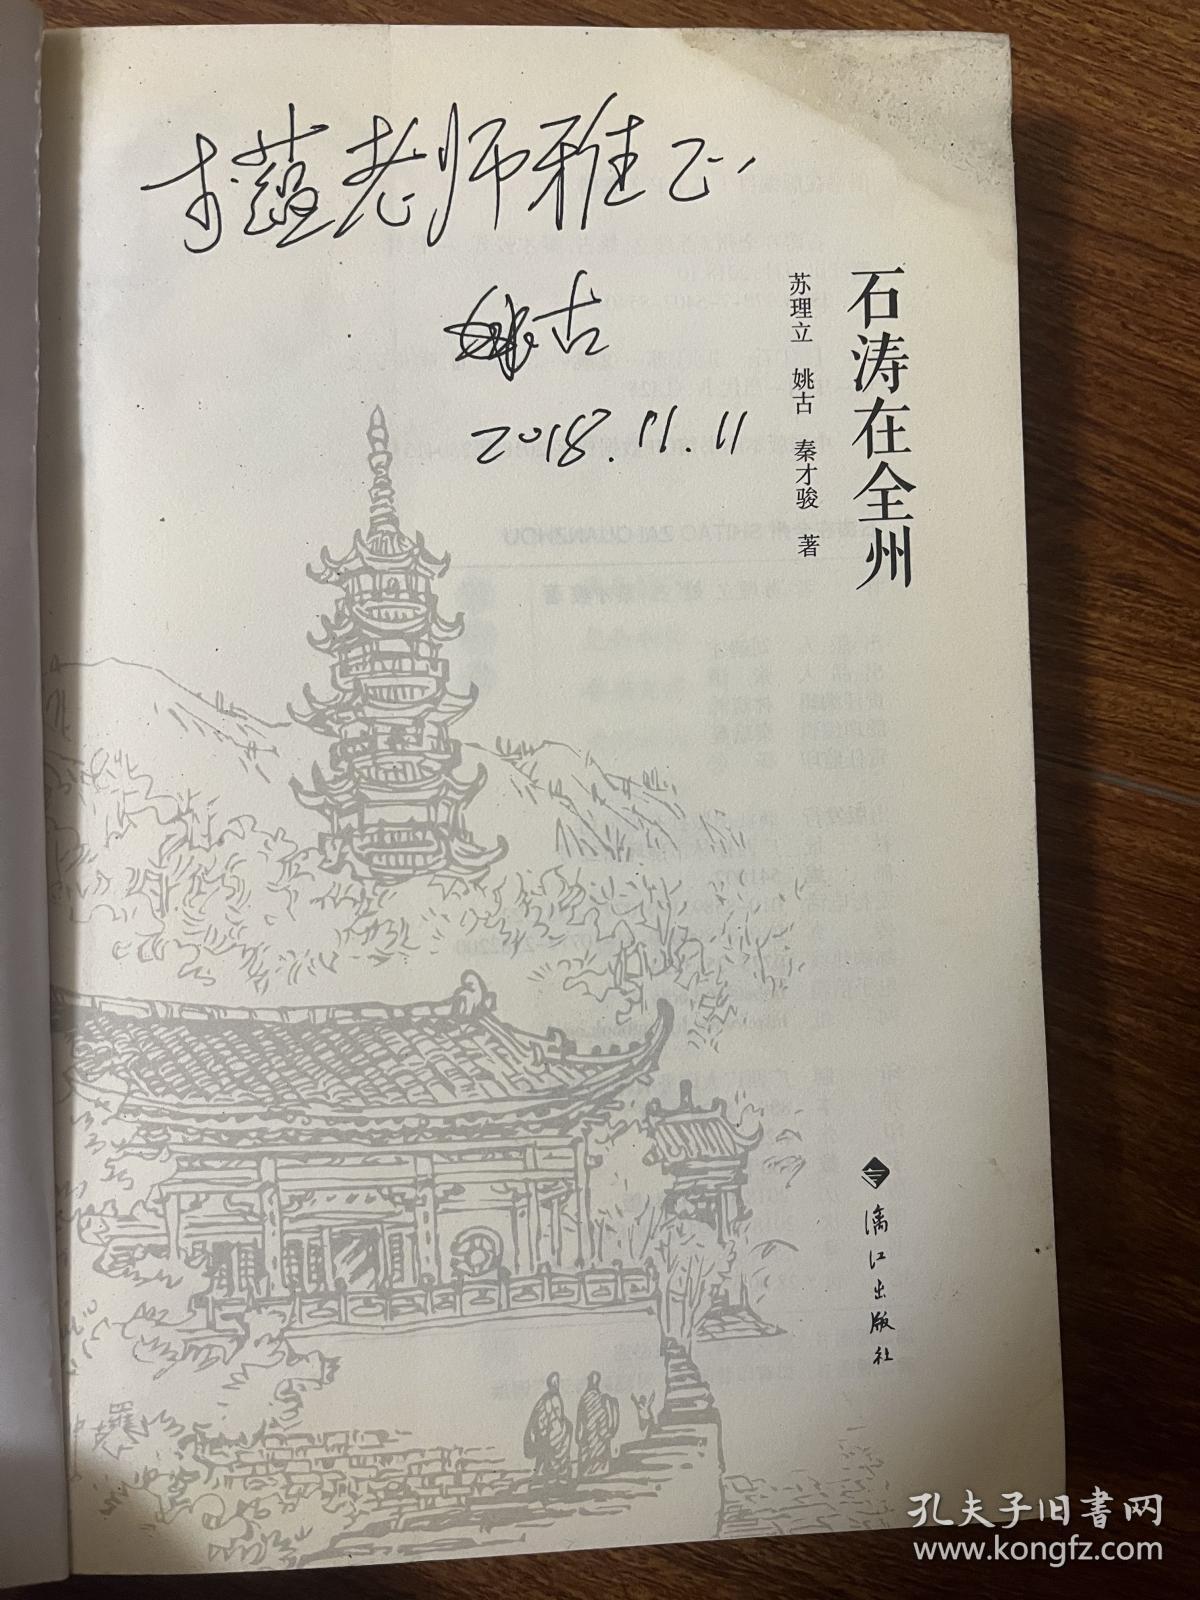 老师雅正
姚古
2018.11.11
石涛在全州
苏理立 姚古 秦才骏 著
漓江出版社
孔夫子旧书网
www.kongfz.com